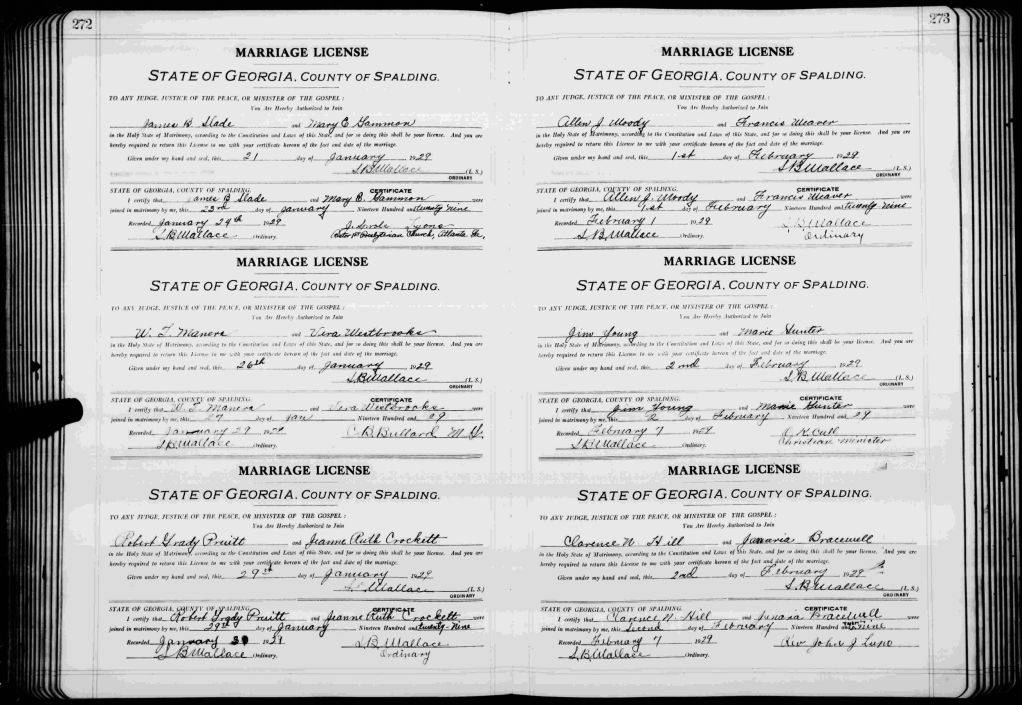 272
MARRIAGE LICENSE
STATE OF GEORGIA, COUNTY OF SPALDING.
TO ANY JUDGE, JUSTICE OF THE PEACE, OR MINISTER OF THE GOSPEL :
You Are Hereby Authorized to Join
James B. Slade and Mary E Gammon
in the Holy State of Matrimony, according to the Constitution and Laws of this State, and for so doing this shall be your license. And you are
hereby required to return this License to me with your certificate hereon of the fact and date of the marriage.
Given under my hand and seal, this 21 day of January 1929
S.B. Wallace (L. S.)
ORDINARY
STATE OF GEORGIA, COUNTY OF SPALDING. CERTIFICATE
I certify that James B Slade and Mary E. Gammon were
joined in matrimony by me, this 23rd day of January Nineteen Hundred and twenty nine
Recorded January 24th 1929
S.B. Wallace Ordinary. Presbyterian Church, Atlanta Ga.
MARRIAGE LICENSE
STATE OF GEORGIA, COUNTY OF SPALDING.
TO ANY JUDGE, JUSTICE OF THE PEACE, OR MINISTER OF THE GOSPEL :
You Are Hereby Authorized to Join
W. T. Manore and Vera Westbrooks
in the Holy State of Matrimony, according to the Constitution and Laws of this State, and for so doing this shall be your license. And you are
hereby required to return this License to me with your certificate hereon of the fact and date of the marriage.
Given under my hand and seal, this 26th day of January 1929
S.B. Wallace (L. S.)
ORDINARY
STATE OF GEORGIA, COUNTY OF SPALDING. CERTIFICATE
I certify that W. T. Manore and Vera Westbrooks were
joined in matrimony by me, this 27 day of Jan Nineteen Hundred and 29
Recorded January 29 1929 C. B. Bullard M. G.
S.B. Wallace Ordinary.
MARRIAGE LICENSE
STATE OF GEORGIA, COUNTY OF SPALDING.
TO ANY JUDGE, JUSTICE OF THE PEACE, OR MINISTER OF THE GOSPEL :
You Are Hereby Authorized to Join
Robert Grady Pruitt and Jeanne Ruth Crockett
in the Holy State of Matrimony, according to the Constitution and Laws of this State, and for so doing this shall be your license. And you are
hereby required to return this License to me with your certificate hereon of the fact and date of the marriage.
Given under my hand and seal, this 29th day of January 1929
S.B. Wallace (L. S.)
ORDINARY
STATE OF GEORGIA, COUNTY OF SPALDING. CERTIFICATE
I certify that Robert Grady Pruitt and Jeanne Ruth Crockett were
joined in matrimony by me, this 29th day of January Nineteen Hundred and twenty nine
Recorded January 30 1929 S.B. Wallace
S.B. Wallace Ordinary. Ordinary
273
MARRIAGE LICENSE
STATE OF GEORGIA, COUNTY OF SPALDING.
TO ANY JUDGE, JUSTICE OF THE PEACE, OR MINISTER OF THE GOSPEL :
You Are Hereby Authorized to Join
Allen J. Moody and Francis Weaver
in the Holy State of Matrimony, according to the Constitution and Laws of this State, and for so doing this shall be your license. And you are
hereby required to return this License to me with your certificate hereon of the fact and date of the marriage.
Given under my hand and seal, this 1st day of February 1929
S.B. Wallace (L. S.)
ORDINARY
STATE OF GEORGIA, COUNTY OF SPALDING. CERTIFICATE
I certify that Allen J. Moody and Francis Weaver were
joined in matrimony by me, this 1st day of February Nineteen Hundred and twenty nine
Recorded February 1 1929 S.B. Wallace
S.B. Wallace Ordinary. Ordinary
MARRIAGE LICENSE
STATE OF GEORGIA, COUNTY OF SPALDING.
TO ANY JUDGE, JUSTICE OF THE PEACE, OR MINISTER OF THE GOSPEL :
You Are Hereby Authorized to Join
Jim Young and Marie Gunter
in the Holy State of Matrimony, according to the Constitution and Laws of this State, and for so doing this shall be your license. And you are
hereby required to return this License to me with your certificate hereon of the fact and date of the marriage.
Given under my hand and seal, this 2nd day of February 1929
S.B. Wallace (L. S.)
ORDINARY
STATE OF GEORGIA, COUNTY OF SPALDING. CERTIFICATE
I certify that Jim Young and Marie Gunter were
joined in matrimony by me, this 2 day of February Nineteen Hundred and 29
Recorded February 7 1929
S.B. Wallace Ordinary. Christian Minister
MARRIAGE LICENSE
STATE OF GEORGIA, COUNTY OF SPALDING.
TO ANY JUDGE, JUSTICE OF THE PEACE, OR MINISTER OF THE GOSPEL :
You Are Hereby Authorized to Join
Clarence N. Hill and Janaria Bracewell
in the Holy State of Matrimony, according to the Constitution and Laws of this State, and for so doing this shall be your license. And you are
hereby required to return this License to me with your certificate hereon of the fact and date of the marriage.
Given under my hand and seal, this 2nd day of February 1929
S.B. Wallace (L. S.)
ORDINARY
STATE OF GEORGIA, COUNTY OF SPALDING. CERTIFICATE
I certify that Clarence N. Hill and Bracewell were
joined in matrimony by me, this Second day of February Nineteen Hundred and twenty nine
Recorded February 7 1929 Rev John J
S.B. Wallace Ordinary.